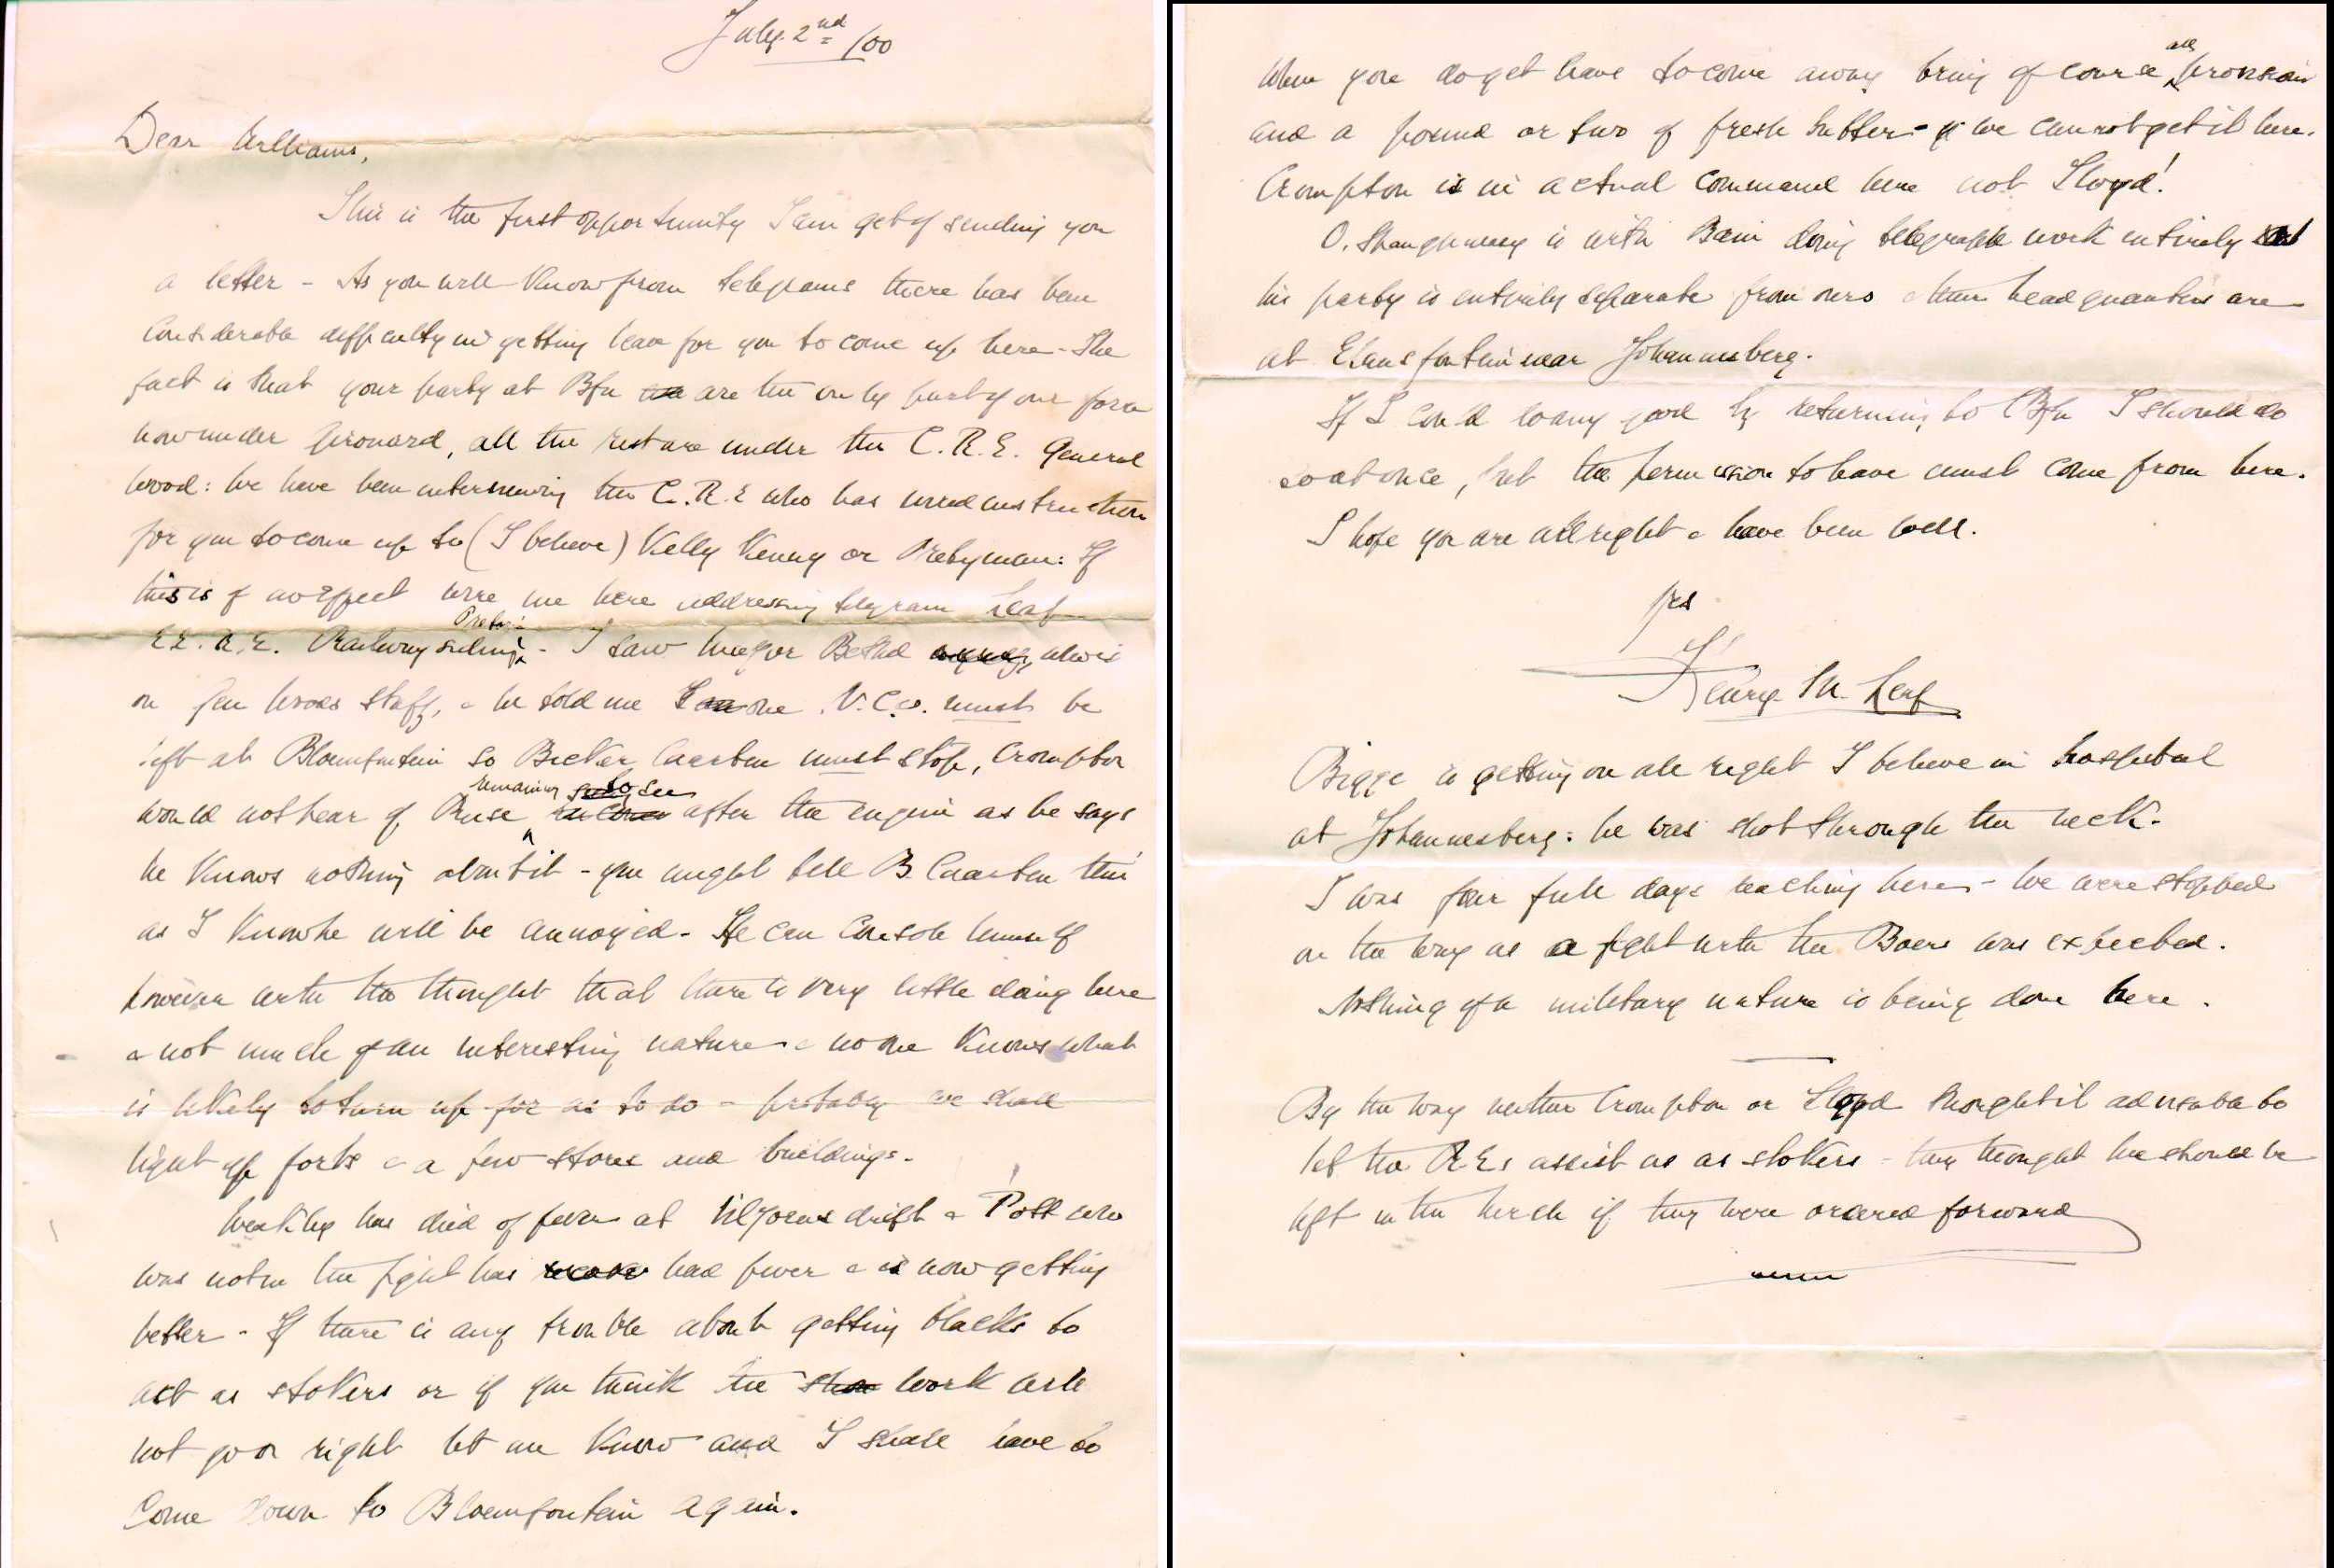 July 2nd /00
Dear Williams,
This is the first opportunity I can get of sending you
a letter - As you will know from telegrams there has been
considerable difficulty in getting leave for you to come up here - The
fact is that your party at Bfn are the only part of our force
now under Girouard, all the rest are under the C.R.E. General
Wood: We have been interviewing the C.R.E who has wired instruction
for you to come up to (I believe) Kelly Kenny or Pretyman: If
this is of no effect wire me here addressing telegram Leaf
E.E.R.E. Railway siding Pretoria - I saw Major Bethel who is
on Gen Woods staff, & he told me one N.C.O. must be
left at Bloemfontein so Becker Caarten must stop, Crompton
would not hear of Ruse remaining to see after the engine as he says
he knows nothing about it - you might tell B. Caarten this
as I know he will be annoyed - He can console himself
however with the thought that there is very little doing here
& not much of an interesting nature & no one knows what
is likely to turn up for us to do - probably we shall
light up forts & a few stores and buildings.
has died of fever at drift & Pott who
was not in the fight has had fever & is now getting
better - If there is any trouble about getting blacks to
act as stokers or if you think the work will
not go on right let me know and I shall have to
come down to Bloemfontein again.
When you do get leave to come away bring of course all provisions
and a pound or two of fresh butter - we cannot get it here.
Crompton is in actual command here not Lloyd!
O. Shaughnessy is with Bain doing telegraph work entirely
his party is entirely separate from ours & their headquarters are
at Elansfontein near Johannesberg.
If I could do any good by returning to Bfn I should do
so at once, but the permission to leave must come from here.
I hope you are all right & have been well.
yrs
Henry M. Leaf
Bigge is getting on all right I believe in hospital
at Johannesberg: he was shot through the neck.
I was four full days reaching here - We were stopped
on the way as a fight with the Boers was expected.
Nothing of a military nature is being done here.
By the way neither Crompton or Lloyd thought it advisable to
let the REs assist us as stokers - they thought we should be
left in the lurch if they were ordered forward